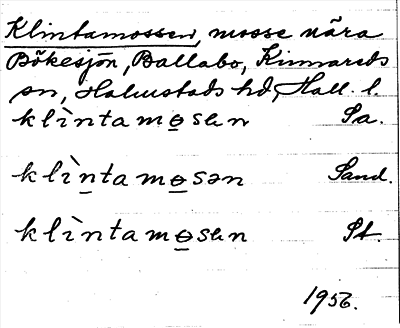 Klintamossen, mosse nära
Bökesjön, Ballabo, Kinnareds
sn, Halmstads hd, Hall. l.
klìntamɵsən Sa.
klìntamɵsən Sand.
klìntamɵsən St.
1956.